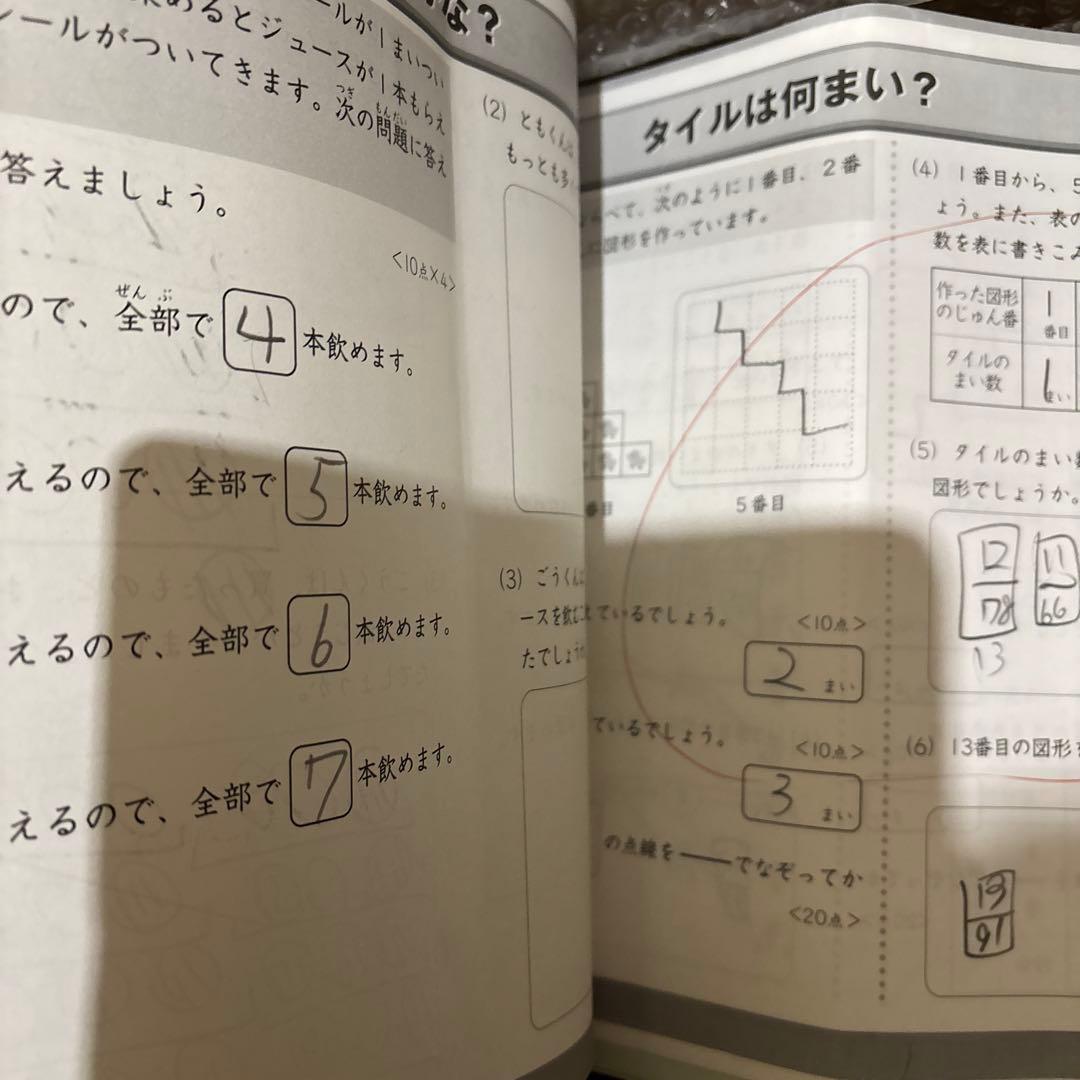 な?
めるとジュースが1本もらえ
ールがついてきます。次の問題に答え
つぎ
もんだい
答えましょう。
<10点×4>
ので、全部で 4 本飲めます。
ぜん ぶ
えるので、全部で 5 本飲めます。
えるので、全部で 6 本飲めます。
えるので、全部で 7 本飲めます。
(2) ともくん
もっとも多
(3) ごうくん
ースを飲む
たでしょう
タイルは何まい?
べて、次のように1番目、2番
図形を作っています。
番目
5番目
ているでしょう。
<10点>
2 まい
ているでしょう。
<10点>
3 まい
の点線を――でなぞってか
<20点>
(4) 1番目から、5
ょう。また、表の
数を表に書きこみ
作った図形のじゅん番 1 番目
タイルのまい数 1 まい
(5) タイルのまい数
図形でしょうか。
12
78
11
66
13
(6) 13番目の図形
13
91